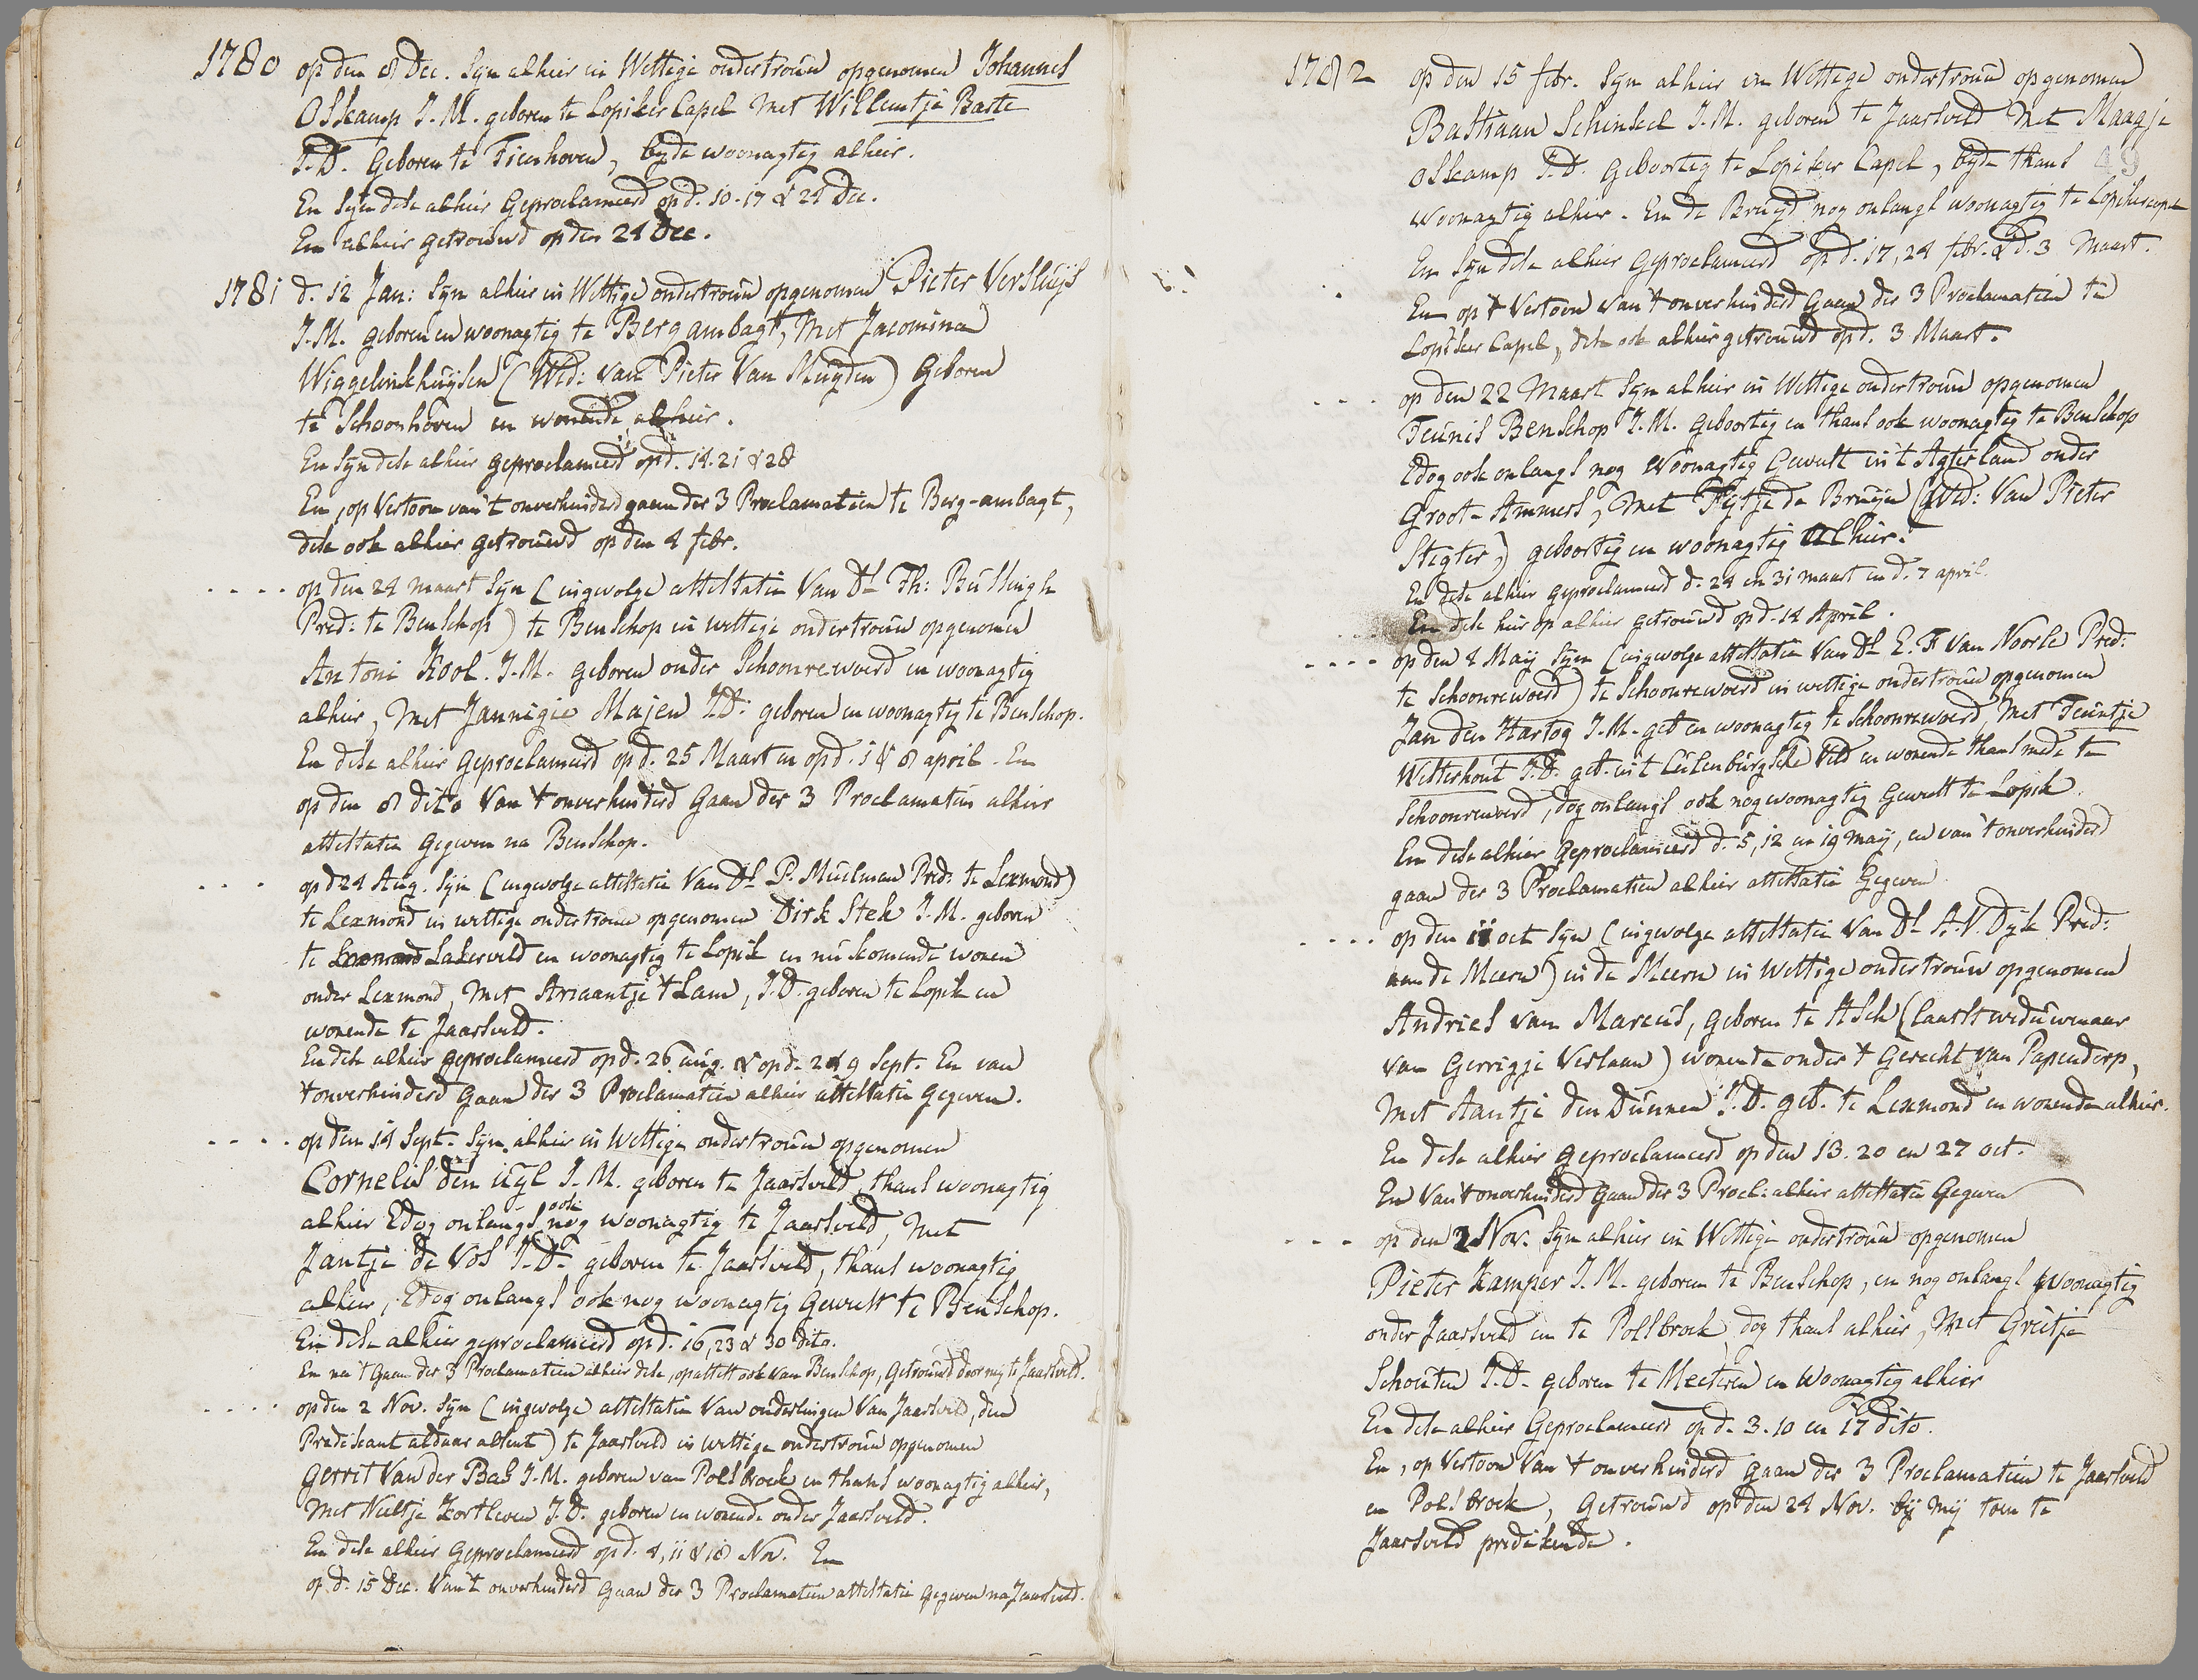 1780 op den 8 Dec. Syn alhier in Wettige ondertrouw opgenomen Johannes
Oskamp J.M. geboren te Lopiker Capel Met Willemtje Baste
J.D. Geboren te Tienhoven, byde woonagtig alhier.
En Syn dese alhier Geproclameerd op d. 10. 17 & 24 Dec.
En alhier getrouwd op den 24 Dec.
1781 d. 12 Jan: Syn alhier in Wettige ondertrouw opgenomen Pieter Versluijs
J.M. geboren en woonagtig te Bergambagt, Met Jacomina
Wiggelinkhuijsen (Wed: van Pieter Van Muijden) Geboren
te Schoonhoven en wonende alhier.
En Syn dese alhier geproclameerd op d. 14. 21 & 28
En, op Vertoon van 't onverhinderd gaan der 3 Proclamatien te Berg-ambagt,
dese ook alhier getrouwd op den 4 febr.
. . . . op den 24 maart Syn (ingevolge attestatie Van Ds Th: Bussingh
Pred: te Benschop) te Benschop in wettige ondertrouw opgenomen
Antoni Kool. J.M. geboren onder Schoonrewoerd en woonagtig
alhier, Met Jannigie Majen J.D. geboren en woonagtig te Benschop.
En dese alhier geproclameerd op d. 25 Maart en op d. 1 & 8 april. En
op den 8 dito Van 't onverhinderd Gaan der 3 Proclamatien alhier
attestatie gegeven na Benschop.
. . . op d 24 Aug. Syn (ingevolge attestatie Van Ds P. Muelman Pred: te Lexmond)
te Lexmond in wettige ondertrouw opgenomen Dirk Stek J.M. geboren
te Lexmond Lakerveld en woonagtig te Lopik en nu komende wonen
onder Lexmond, Met Ariaantje 't Lam, J.D. geboren te Lopik en
wonende te Jaarsveld.
En dese alhier geproclameerd op d. 26 aug. & op d. 2 & 9 Sept. En van
't onverhinderd gaan der 3 Proclamatien alhier attestatie gegeven.
. . . . op den 14 Sept. Syn alhier in Wettige ondertrouw opgenomen
Cornelis den uijl J.M. geboren te Jaarsveld, thans woonagtig
alhier Edog onlangs ook nog woonagtig te Jaarsveld, Met
Jantje de Vos J.D. geboren te Jaarsveld, thans woonagtig
alhier, Edog onlangs ook nog woonagtig Geweest te Benschop.
En dese alhier geproclameerd op d. 16, 23 & 30 dito.
En na 't Gaan der 3 Proclamatien alhier dese, op attest ook van Benschop, Getrouwd door mij te Jaarsveld.
. . . . op den 2 Nov. Syn (ingevolge attestatie Van ouderlingen Van Jaarsveld, den
Predikant aldaar absent) te Jaarsveld in wettige ondertrouw opgenomen
Gerrit Van der Bas J.M. geboren van Polsbroek en thans woonagtig alhier,
Met Neeltje Kortleven J.D. geboren en wonende onder Jaarsveld.
En dese alhier Geproclameerd op d. 4, 11 & 18 Nov. En
op d. 15 Dec. Van 't onverhinderd Gaan der 3 Proclamatien attestatie gegeven na Jaarsveld.
1782 op den 15 febr. Syn alhier in Wettige ondertrouw opgenomen
Bastiaan Schinkel J.M. geboren te Jaarsveld Met Maagje
Oskamp J.D. Geboortig te Lopiker Capel, byde thans 49
woonagtig alhier. En de Bruyd nog onlangs woonagtig te Lopikercapel
En Syn dese alhier geproclameerd op d. 17, 24 febr. & d. 3 Maart.
En op 't Vertoon Van 't onverhinderd Gaan der 3 Proclamatien te
Lopiker Capel, dese ook alhier getrouwd op d. 3 Maart.
. . . op den 22 Maart Syn alhier in Wettige ondertrouw opgenomen
Teunis Benschop J.M. Geboortig en thans ook woonagtig te Benschop
Edog ook onlangs nog Woonagtig Geweest in 't Agterland onder
Groot-Ammers, Met Fijtje de Bruijn (Wed: Van Pieter
Stigter,) geboortig en woonagtig alhier.
En dese alhier geproclameerd d. 24 en 31 maart en d. 7 april.
En dese hier op alhier getrouwd op d. 14 April.
. . . . op den 4 Maij Syn (ingevolge attestatie Van Ds E. F van Noorle Pred:
te Schoonrewoerd) te Schoonrewoerd in wettige ondertrouw opgenomen
Jan den Hartog J.M. geb en woonagtig te Schoonrewoerd, Met Teuntje
Witterhout J.D. geb. in 't Culenburgsche Veld en wonende thans mede te
Schoonrewoerd, dog onlangs ook nog woonagtig Geweest te Lopik
En dese alhier Geproclameerd d. 5, 12 en 19 maij, en van 't onverhinderd
gaan der 3 Proclamatien alhier attestatie Gegeven
. . . . op den 11 oct Syn (ingevolge attestatie Van Ds A.V. Dyk Pred:
aan de Meern) in de Meern in Wettige ondertrouw opgenomen
Andries van Mareus, geboren te Asch (laatst weduwenaar
van Gerrigje Verlaan) wonende onder 't Gerecht van Papendorp,
Met Aantje den Dunnen J.D. geb. te Lexmond en wonende alhier.
En dese alhier geproclameerd op den 13. 20 en 27 oct.
En Van 't onverhinderd Gaan der 3 Procl: alhier attestatie Gegeven
. . . op den 2 Nov. Syn alhier in Wettige ondertrouw opgenomen
Pieter Kamper J.M. geboren te Benschop, en nog onlangs Woonagtig
onder Jaarsveld en te Polsbroek, dog thans alhier, Met Grietje
Schouten J.D. geboren te Meeteren en Woonagtig alhier
En dese alhier Geproclameerd op d. 3. 10 en 17 dito.
En, op Vertoon Van 't onverhinderd gaan der 3 Proclamatien te Jaarsveld
en Polsbroek, Getrouwd op den 24 Nov. bij mij toen te
Jaarsveld predikende.